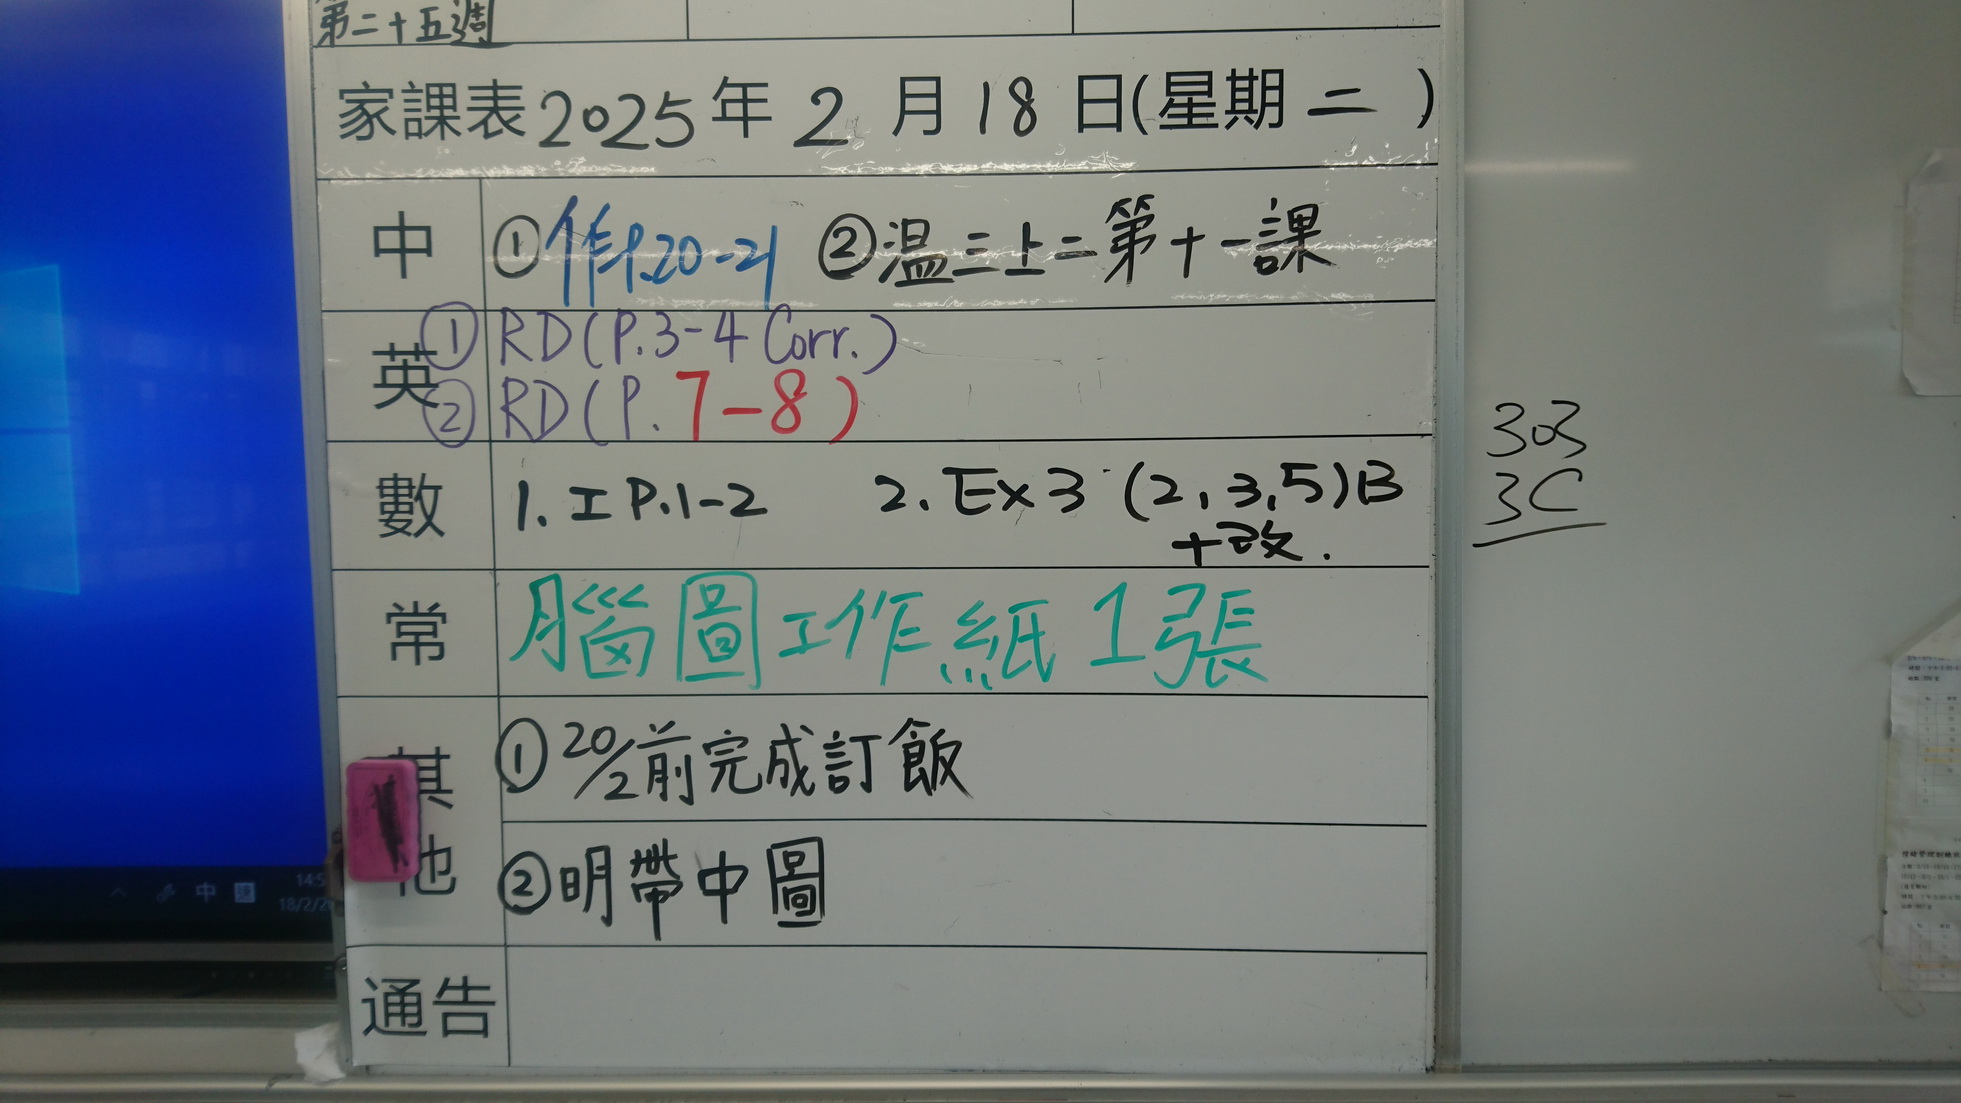 第二十五週
家課表 2025 年 2 月 18 日(星期 二 )
中 ①作P.20-21 ②温三上二第十一課
英 ① RD(P.3-4 Corr.)
② RD(P. 7-8)
數 1. 工 P.1-2 2. Ex 3 (2,3,5)B
+改.
常 腦圖工作紙1張
其他 ①20/2前完成訂飯
②明帶中圖
通告
303
3C
中
14:5
18/2/2